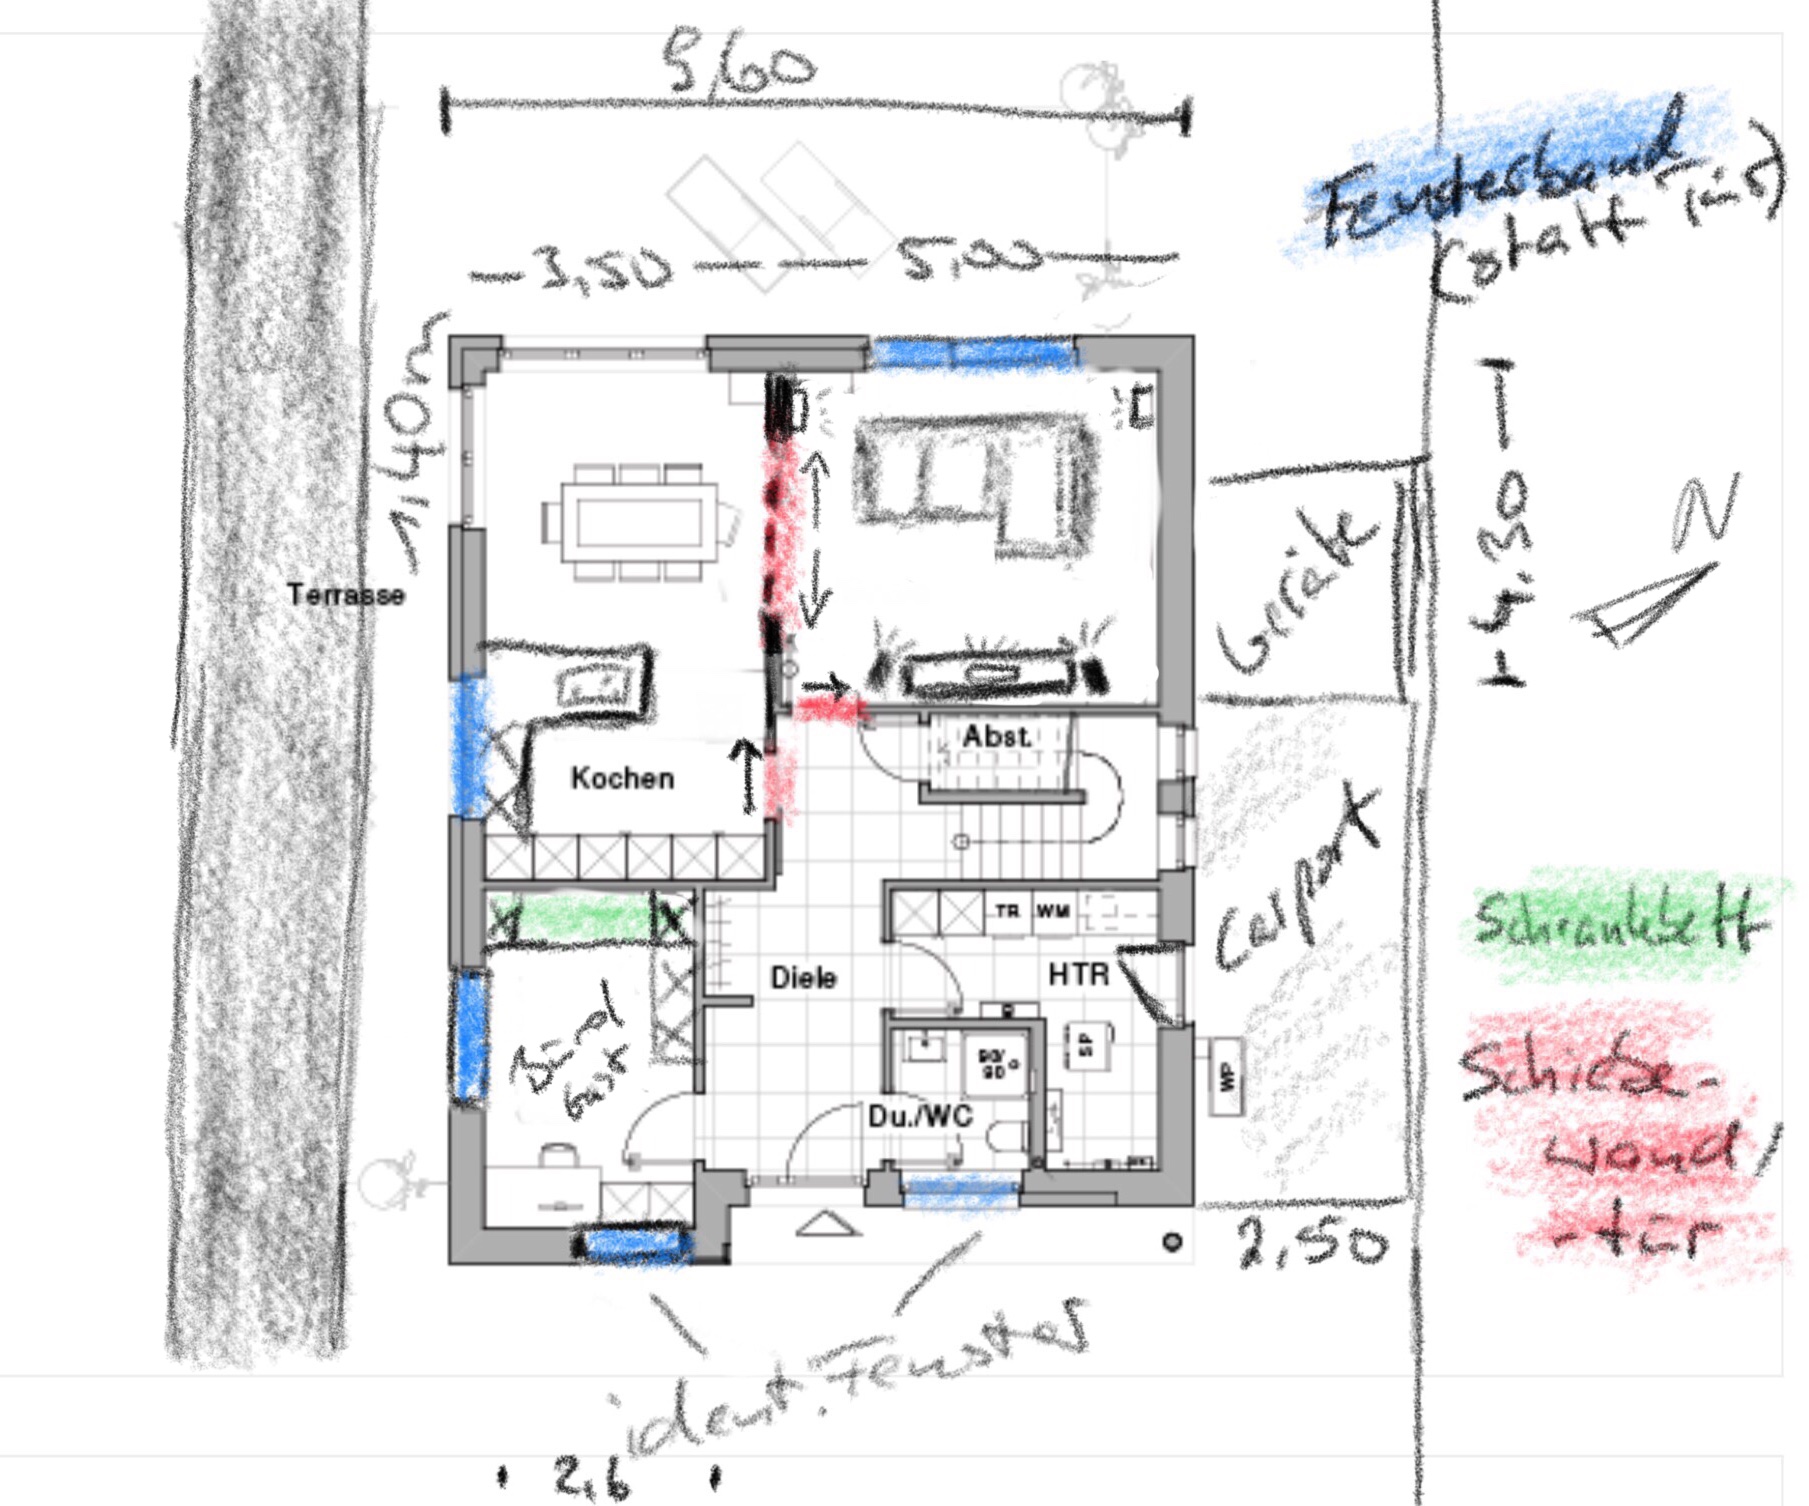 9,60
Fensterband
(statt Tür)
3,50
5,00
1,40m
4.30
N
Geräte
Terrasse
Abst.
Kochen
Carport
Schrankbett
TR
WM
Diele
HTR
Büro/
Gast
SP
90/
90
WP
Schiebe-
wand/
-tür
Du./WC
2,50
ident. Fenster
2,6